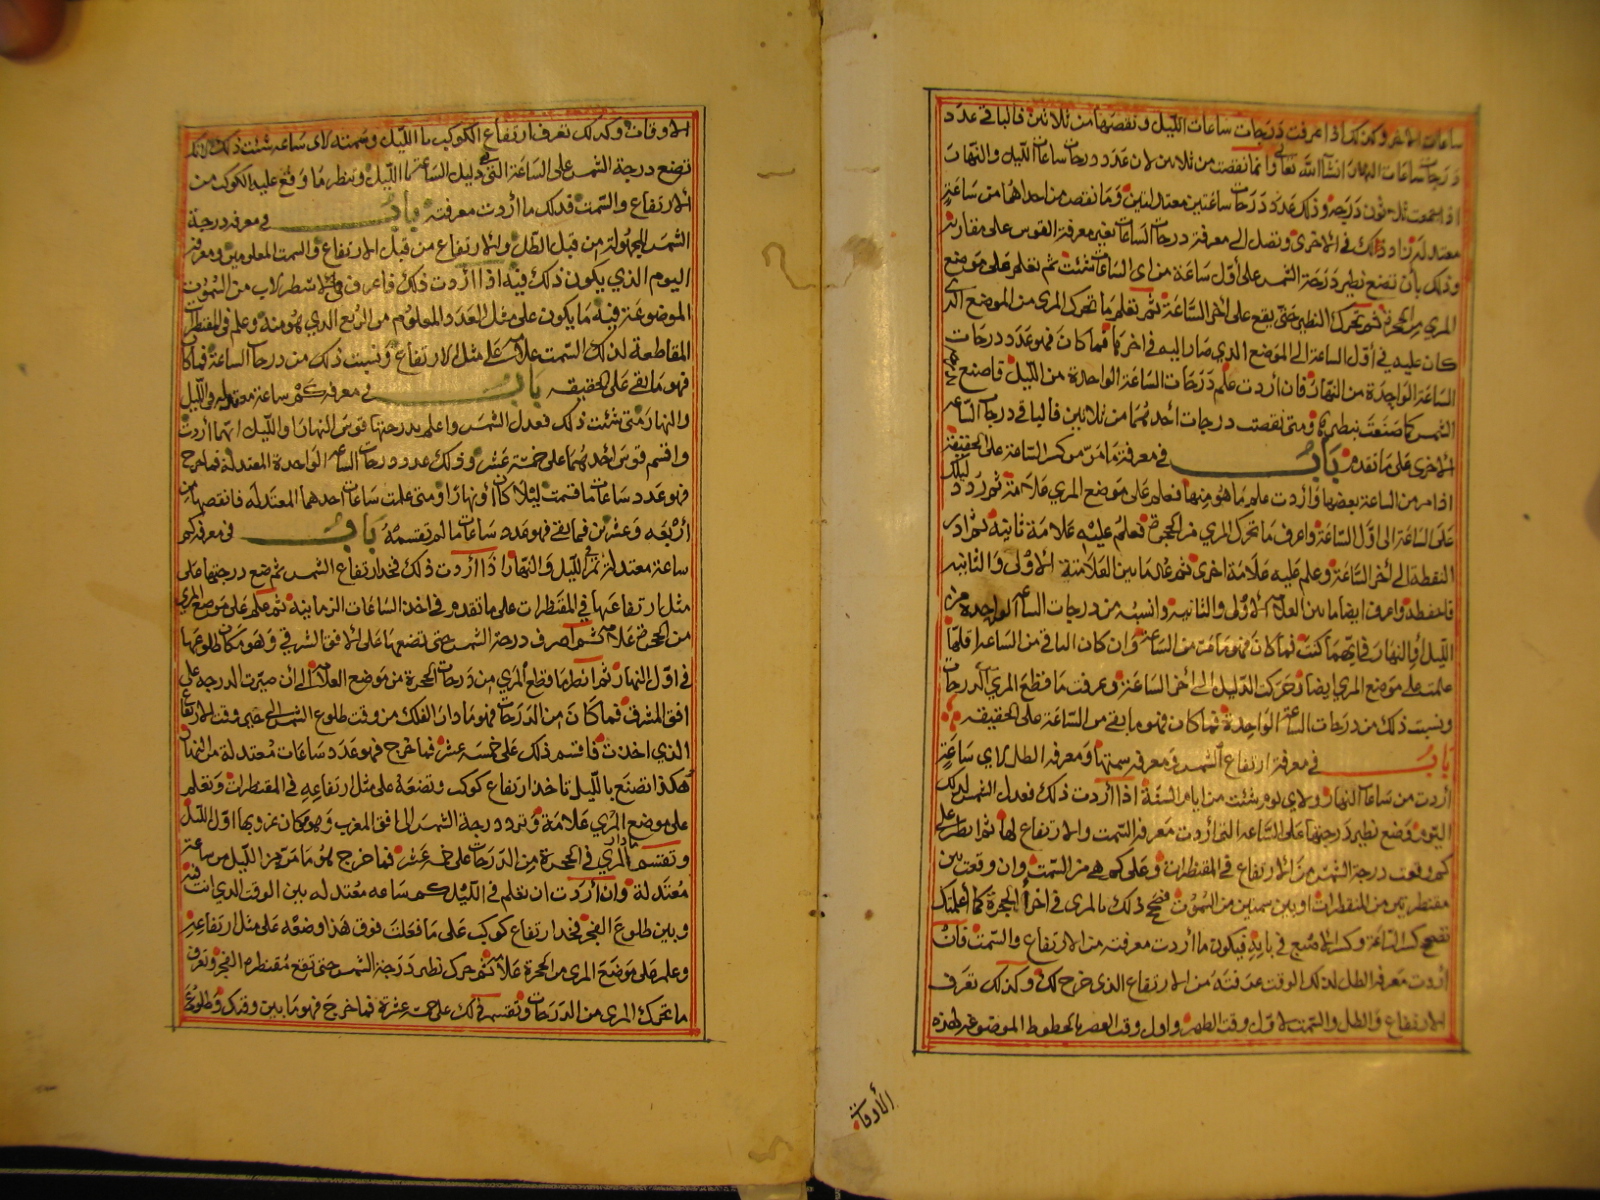 ساعات الاخر وكذلك اذا عرفت درجات ساعات الليل ونقصتها من ثلاثين فالباقي عدد
درجات ساعات النهار ان شاء الله تعالى وانما نقصت من ثلاثين لان عدد درجات ساعات الليل والنهار
اذا جمعت ثلاثون درجة وذلك عدد درجات ساعتين معتدلتين وما نقص من احداهما من ساعة
معتدلة زاد ذلك في الاخرى ونصل الى معرفة درجات الساعات بغير معرفة القوس على مقاربة
وذلك بأن تضع نظير درجة الشمس على أول ساعة من اي الساعات شئت ثم تعلم على موضع
المري من الحجرة ثم تحرك النظير حتى يقع على اخر الساعة ثم تعلم ما تحرك المري من الموضع الذي
كان عليه في أول الساعة الى الموضع الذي صار اليه في اخرها فما كان فهو عدد درجات
الساعة الواحدة من النهار فان أردت علم درجات الساعة الواحدة من الليل فاصنع بدرجة
الشمس كما صنعت بنظيرها ومتى نقصت درجات أحدهما من ثلاثين فالباقي درجات الساعة
الاخرى على ما تقدم باب في معرفة ما مر من كسر الساعة على الحقيقة
اذا مر من الساعة بعضها وأردت علم ما هو منها فعلم على موضع المري علامة ثم رد دليلك
على الساعة الى اول الساعة واعرف ما تحرك المري من الحجرة فعلم عليه علامة ثانية ثم ادر
النقطة الى أخر الساعة وعلم عليه علامة اخرى ثم عد ما بين العلامة الاولى والثانية
فاحفظه واعرف ايضا ما بين العلامة الاولى والثانية وانسبه من درجات الساعة الواحدة من
الليل أو النهار في ايهما كنت فما كان فهو ما مر من الساعة وان كان الباقي من الساعة اقلها
علمت على موضع المري ايضا وحركت الدليل الى أخر الساعة وعرفت ما قطع المري من الدرجات
ونسبت ذلك من درجات الساعة الواحدة فما كان فهو ما بقي من الساعة على الحقيقة
باب في معرفة ارتفاع الشمس وفي معرفة سمتها ومعرفة الظل لاي ساعة
أردت من ساعات النهار ولاي يوم شئت من ايام السنة اذا أردت ذلك فعدل الشمس لذلك
اليوم وضع نظير درجتها على الساعة التي أردت معرفة السمت والارتفاع لها ثم انظر على
كم وقعت درجة الشمس من الارتفاع في المقنطرات وعلى كم هي من السمت وان وقعت بين
مقنطرتين من المقنطرات او بين سمتين من السموت فصحح ذلك بالمري في اجزاء الحجرة كما أعلمتك
تصحح كسر الساعة وكسر الاصبع في بابه فيكون ما أردت معرفته من الارتفاع والسمت فان
أردت معرفة الظل لذلك الوقت عرفته من الارتفاع الذي خرج لك وكذلك تعرف
الارتفاع والظل والسمت لاول وقت الظهر واول وقت العصر بالخطوط الموضوعة لهذه
الأوقات
الاوقات وكذلك تعرف ارتفاع الكوكب بالليل وسمته لاي ساعة شئت ذلك لانك
تضع درجة الشمس على الساعة التي في دليل الساعة الليل وتنظر ما وقع عليه الكوكب من
الارتفاع والسمت فذلك ما أردت معرفته باب في معرفة درجة
الشمس المجهولة من قبل الظل والارتفاع من قبل الارتفاع والسمت المعلومين ومعرفة
اليوم الذي يكون ذلك فيه اذا أردت ذلك فاعرف في الاسطرلاب من السموت
الموضوعة فيه ما يكون على مثل العدد المعلوم من الربع الذي هو منه وعلم في المقنطرات
المقاطعة لذلك السمت علامة على مثل الارتفاع ونسبت ذلك من درجات الساعة فما كان
فهو ما بقي على الحقيقة باب في معرفة كم ساعة معتدلة في الليل
والنهار متى شئت ذلك فعدل الشمس واعلم بدرجتها قوس النهار او الليل ايهما أردت
واقسم قوس احدهما على خمسة عشر وذلك عدد درجات الساعة الواحدة المعتدلة فما خرج
فهو عدد ساعات ما قسمت ليلا كان أو نهارا ومتى علمت ساعات احدهما المعتدلة فانقصها من
أربعة وعشرين فما بقي فهو عدد ساعات ما لم تقسمه باب في معرفة كم
ساعة معتدلة تمر في الليل والنهار اذا أردت ذلك فخذ ارتفاع الشمس ثم ضع درجتها على
مثل ارتفاعها في المقنطرات على ما تقدم في اخذ الساعات الزمانية ثم علم على موضع المري
من الحجرة علامة ثم اصرف درجة الشمس حتى تضعها على الافق الشرقي وهو مكان طلوعها
في اول النهار ثم انظر ما قطع المري من درجات الحجرة من موضع العلامة الى أن صيرت الدرجة على
افق المشرق فما كان من الدرجات فهو ما دار الفلك من وقت طلوع الشمس الى حين وقت الارتفاع
الذي اخذت فاقسم ذلك على خمسة عشر فما خرج فهو عدد ساعات معتدلة من النهار
هكذا تصنع بالليل تاخذ ارتفاع كوكب وتضعه على مثل ارتفاعه في المقنطرات وتعلم
على موضع المري علامة وترد درجة الشمس الى افق المغرب وهو مكان غروبها اول الليل
وتقسم ما دار المري في الحجرة من الدرجات على خمسة عشر فما خرج فهو ما مر من الليل من ساعة
معتدلة وان أردت ان تعلم في الليل كم ساعة معتدلة بين الوقت الذي انت فيه
وبين طلوع الفجر فخذ ارتفاع كوكب على ما فعلت فوق هذا وضعه على مثل ارتفاعه
وعلم على موضع المري من الحجرة علامة ثم حرك نظير درجة الشمس حتى تقع مقنطرة الفجر وتعرف
ما تحرك المري من الدرجات وتقسم ذلك على خمسة عشرة فما خرج فهو ما بين وقتك وطلوع